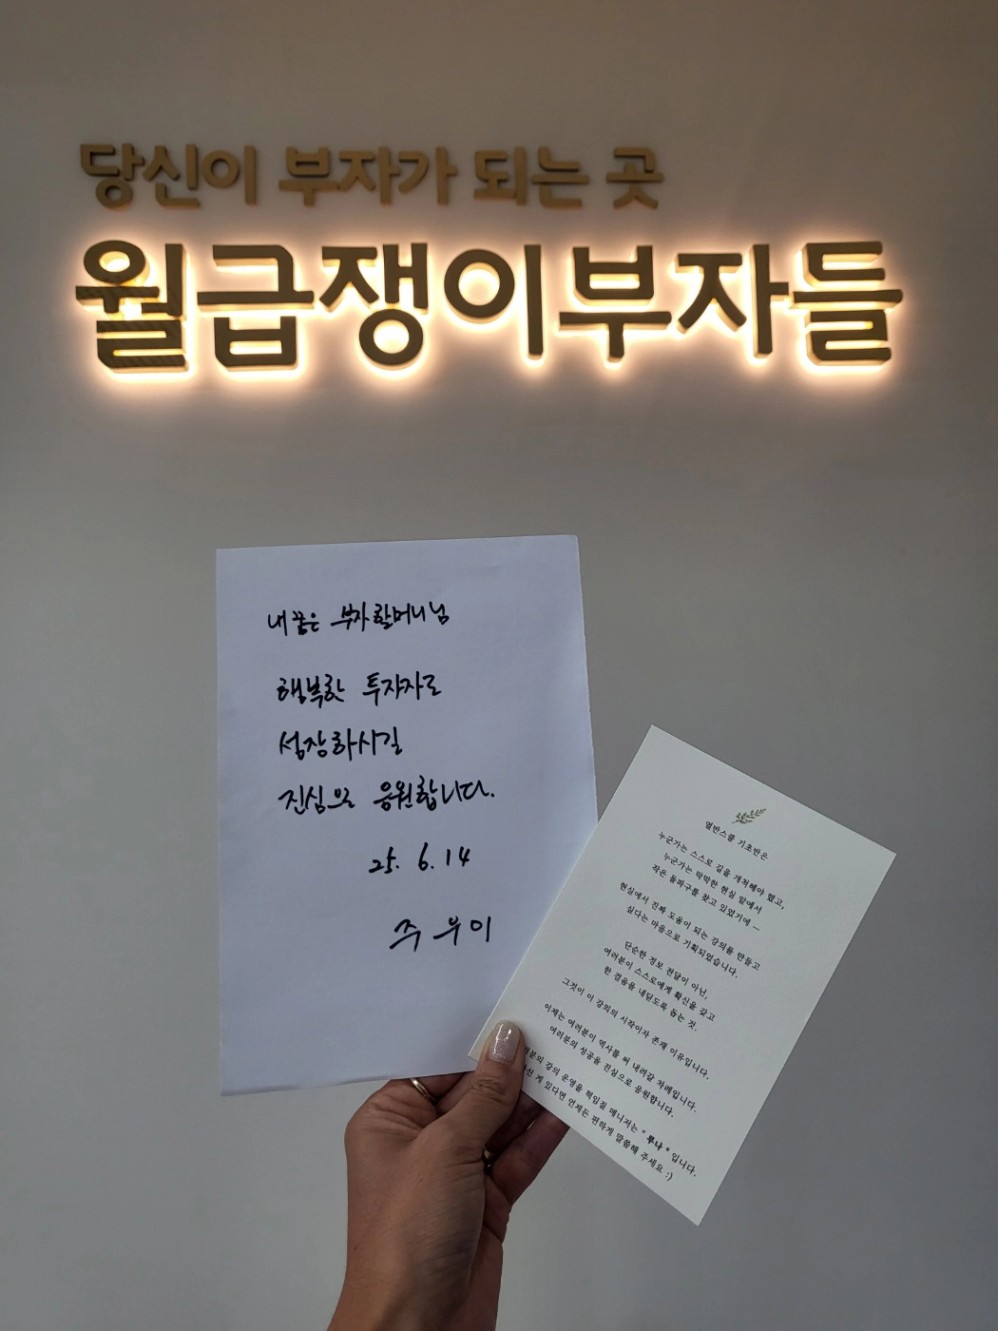 당신이 부자가 되는 곳
월급쟁이부자들
내꿈은 부자할머니님
행복한 투자자로
성장하시길
진심으로 응원합니다.
25. 6. 14
주우이
열반스쿨 기초반은
누군가는 스스로 길을 개척해야 했고,
누군가는 막막한 현실 앞에서
작은 돌파구를 찾고 있었기에 —
현실에서 진짜 도움이 되는 강의를 만들고
싶다는 마음으로 기획되었습니다.
단순한 정보 전달이 아닌,
여러분이 스스로에게 확신을 갖고
한 걸음을 내딛도록 돕는 것.
그것이 이 강의의 시작이자 존재 이유입니다.
이제는 여러분이 역사를 써 내려갈 차례입니다.
여러분의 성공을 진심으로 응원합니다.
강의 운영을 책임질 매니저는 " 루나 " 입니다.
게 있다면 언제든 편하게 말씀해 주세요 :)